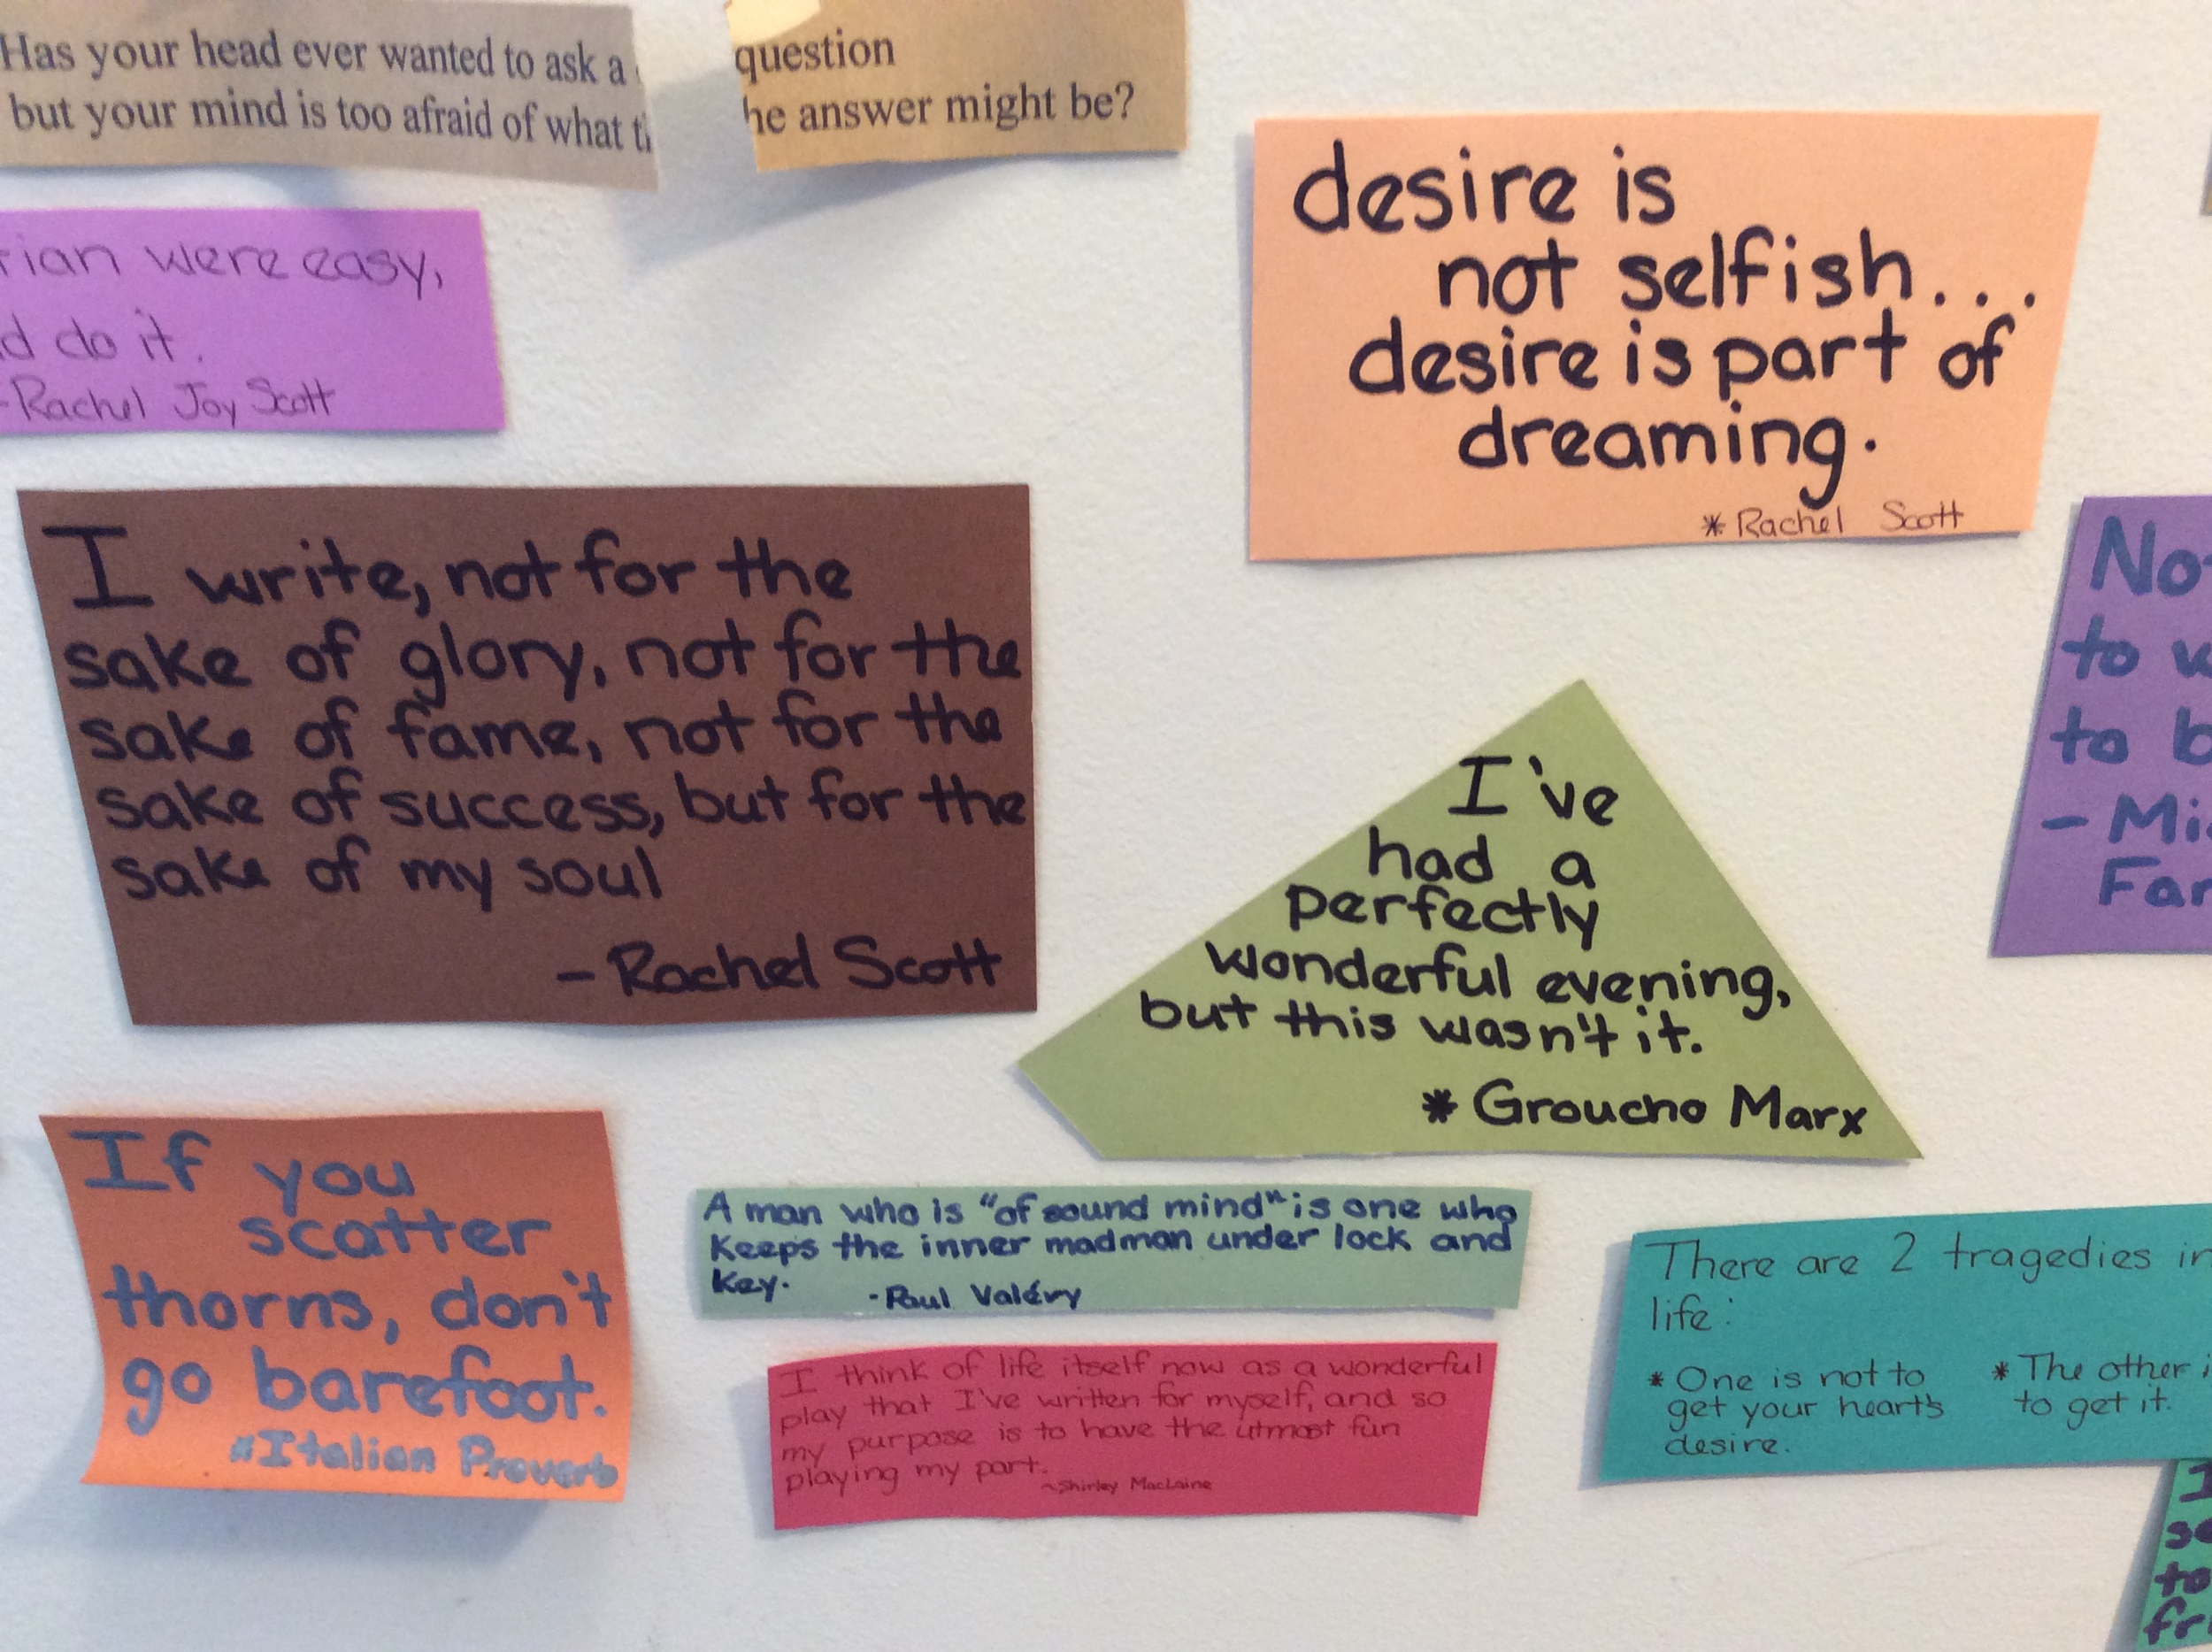 Has your head ever wanted to ask a question
but your mind is too afraid of what the answer might be?
were easy,
do it.
-Rachel Joy Scott
desire is
not selfish...
desire is part of
dreaming.
* Rachel Scott
I write, not for the
sake of glory, not for the
sake of fame, not for the
sake of success, but for the
sake of my soul
- Rachel Scott
I've
had a
perfectly
wonderful evening,
but this wasn't it.
* Groucho Marx
to
to
-
If you
scatter
thorns, don't
go barefoot.
*Italian Proverb
A man who is "of sound mind" is one who
keeps the inner madman under lock and
key. -Paul Valéry
I think of life itself now as a wonderful
play that I've written for myself, and so
my purpose is to have the utmost fun
playing my part.
~Shirley MacLaine
There are 2 tragedies in
life:
* One is not to
get your heart's
desire.
* The other
to get it.
to